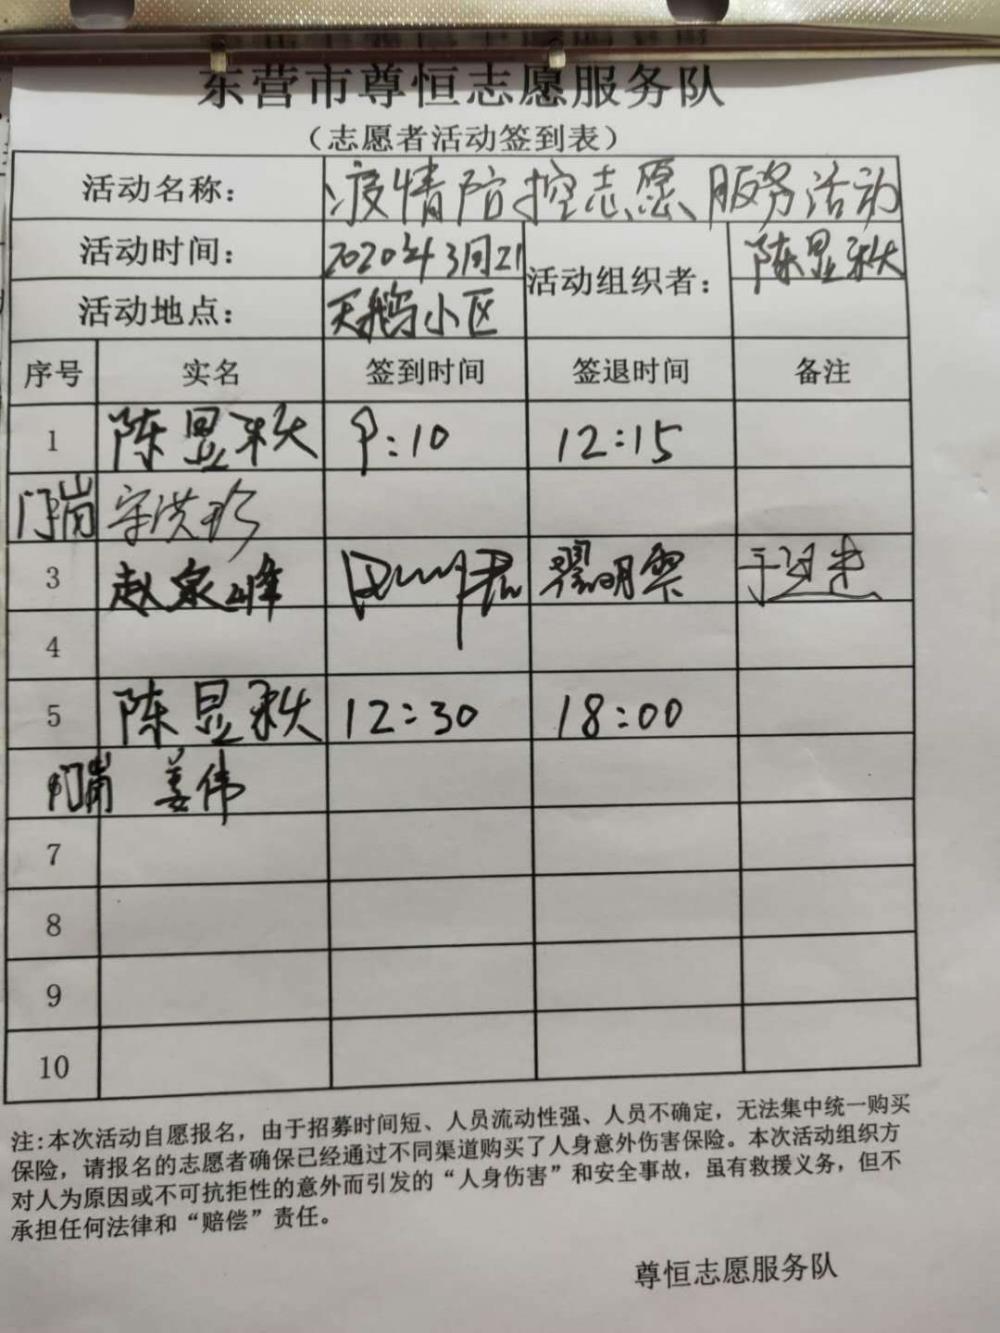 东营市尊恒志愿服务队
（志愿者活动签到表）
活动名称： 疫情防控志愿服务活动
活动时间： 2020年3月21 活动组织者： 陈显秋
活动地点： 天鹅小区
序号 实名 签到时间 签退时间 备注
1 陈显秋 9:10 12:15
门岗 宋洪珍
3 赵家峰 翟明霞
4
5 陈显秋 12:30 18:00
门岗 姜伟
7
8
9
10
注:本次活动自愿报名，由于招募时间短、人员流动性强、人员不确定，无法集中统一购买
保险，请报名的志愿者确保已经通过不同渠道购买了人身意外伤害保险。本次活动组织方
对人为原因或不可抗拒性的意外而引发的“人身伤害”和安全事故，虽有救援义务，但不
承担任何法律和“赔偿”责任。
尊恒志愿服务队